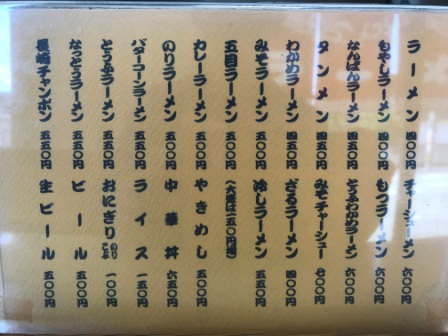 ラーメン 四〇〇円
もやしラーメン 四〇〇円
なんばんラーメン 四五〇円
タンメン 四五〇円
わかめラーメン 四五〇円
みそラーメン 四五〇円
五目ラーメン 五〇〇円
カレーラーメン 五五〇円
のりラーメン 五〇〇円
バターコーンラーメン 五五〇円
とうふラーメン 五五〇円
なっとうラーメン 五五〇円
長崎チャンポン 五五〇円
チャーシューメン 六〇〇円
もつラーメン 六〇〇円
とうふわかめラーメン 六〇〇円
みそチャーシュー 七〇〇円
ざるラーメン 四〇〇円
冷しラーメン 五五〇円
(大盛は一五〇円増)
やきめし 五〇〇円
中華丼 六五〇円
ライス 一五〇円
おにぎり のり こぶ 一〇〇円
ビール 五〇〇円
生ビール 五〇〇円